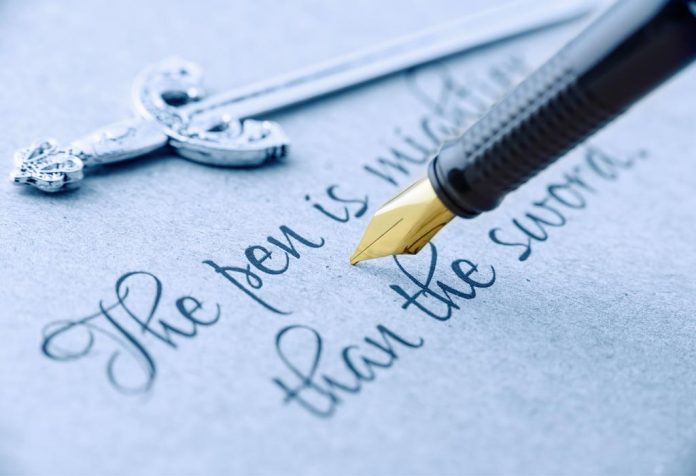 The pen is mightier
than the sword.